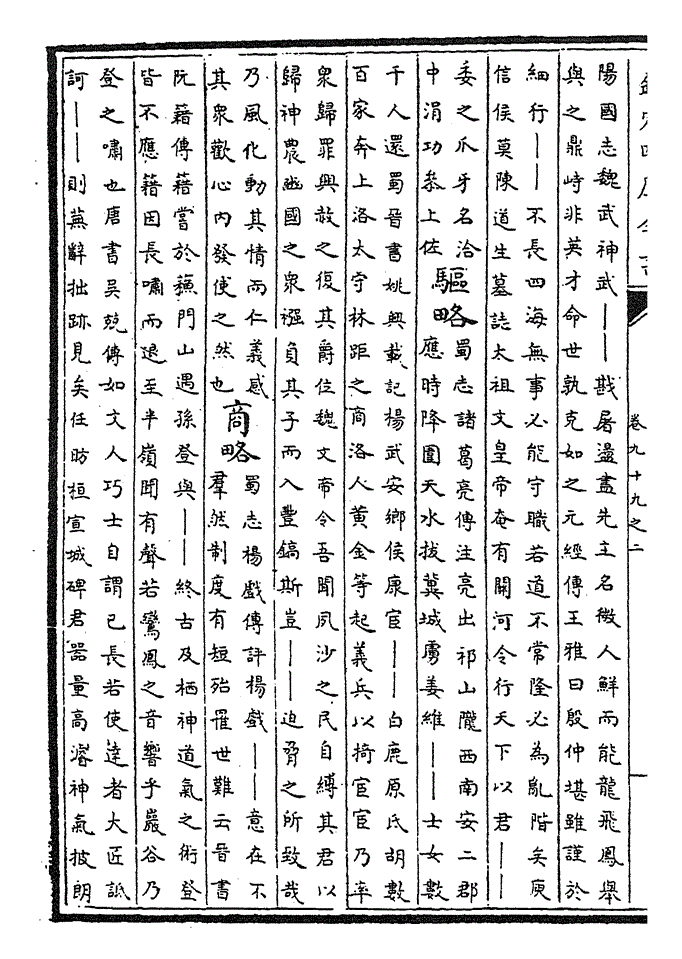 欽定四庫全書
卷九十九之二
陽國志魏武神武——戡屠盪盡先主名微人鮮而能龍飛鳳舉
與之鼎峙非英才命世孰克如之元經傳王雅曰殷仲堪雖謹於
細行——不長四海無事必能守職若道不常隆必為亂階矣庾
信侯莫陳道生墓誌太祖文皇帝奄有關河令行天下以君——
委之爪牙名洽
中涓功叅上佐
驅略
蜀志諸葛亮傳注亮出祁山隴西南安二郡
應時降圍天水拔冀城虜姜維——士女數
千人還蜀晉書姚興載記楊武安鄉侯康宦——白鹿原氐胡數
百家奔上洛太守林距之商洛人黄金等起義兵以掎宦宦乃率
衆歸罪興赦之復其爵位魏文帝令吾聞夙沙之民自縛其君以
歸神農豳國之衆襁負其子而入豐鎬斯豈——迫脅之所致哉
乃風化動其情而仁義感
其衆歡心内發使之然也
商略
蜀志楊戲傳評楊戲——意在不
羣然制度有短殆罹世難云晉書
阮籍傳籍嘗於蘇門山遇孫登與——終古及栖神道氣之術登
皆不應籍因長嘯而退至半嶺聞有聲若鸞鳳之音響乎巖谷乃
登之嘯也唐書吳兢傳如文人巧士自謂已長若使達者大匠詆
訶——則蕪辭拙跡見矣任昉桓宣城碑君器量高濬神氣披朗